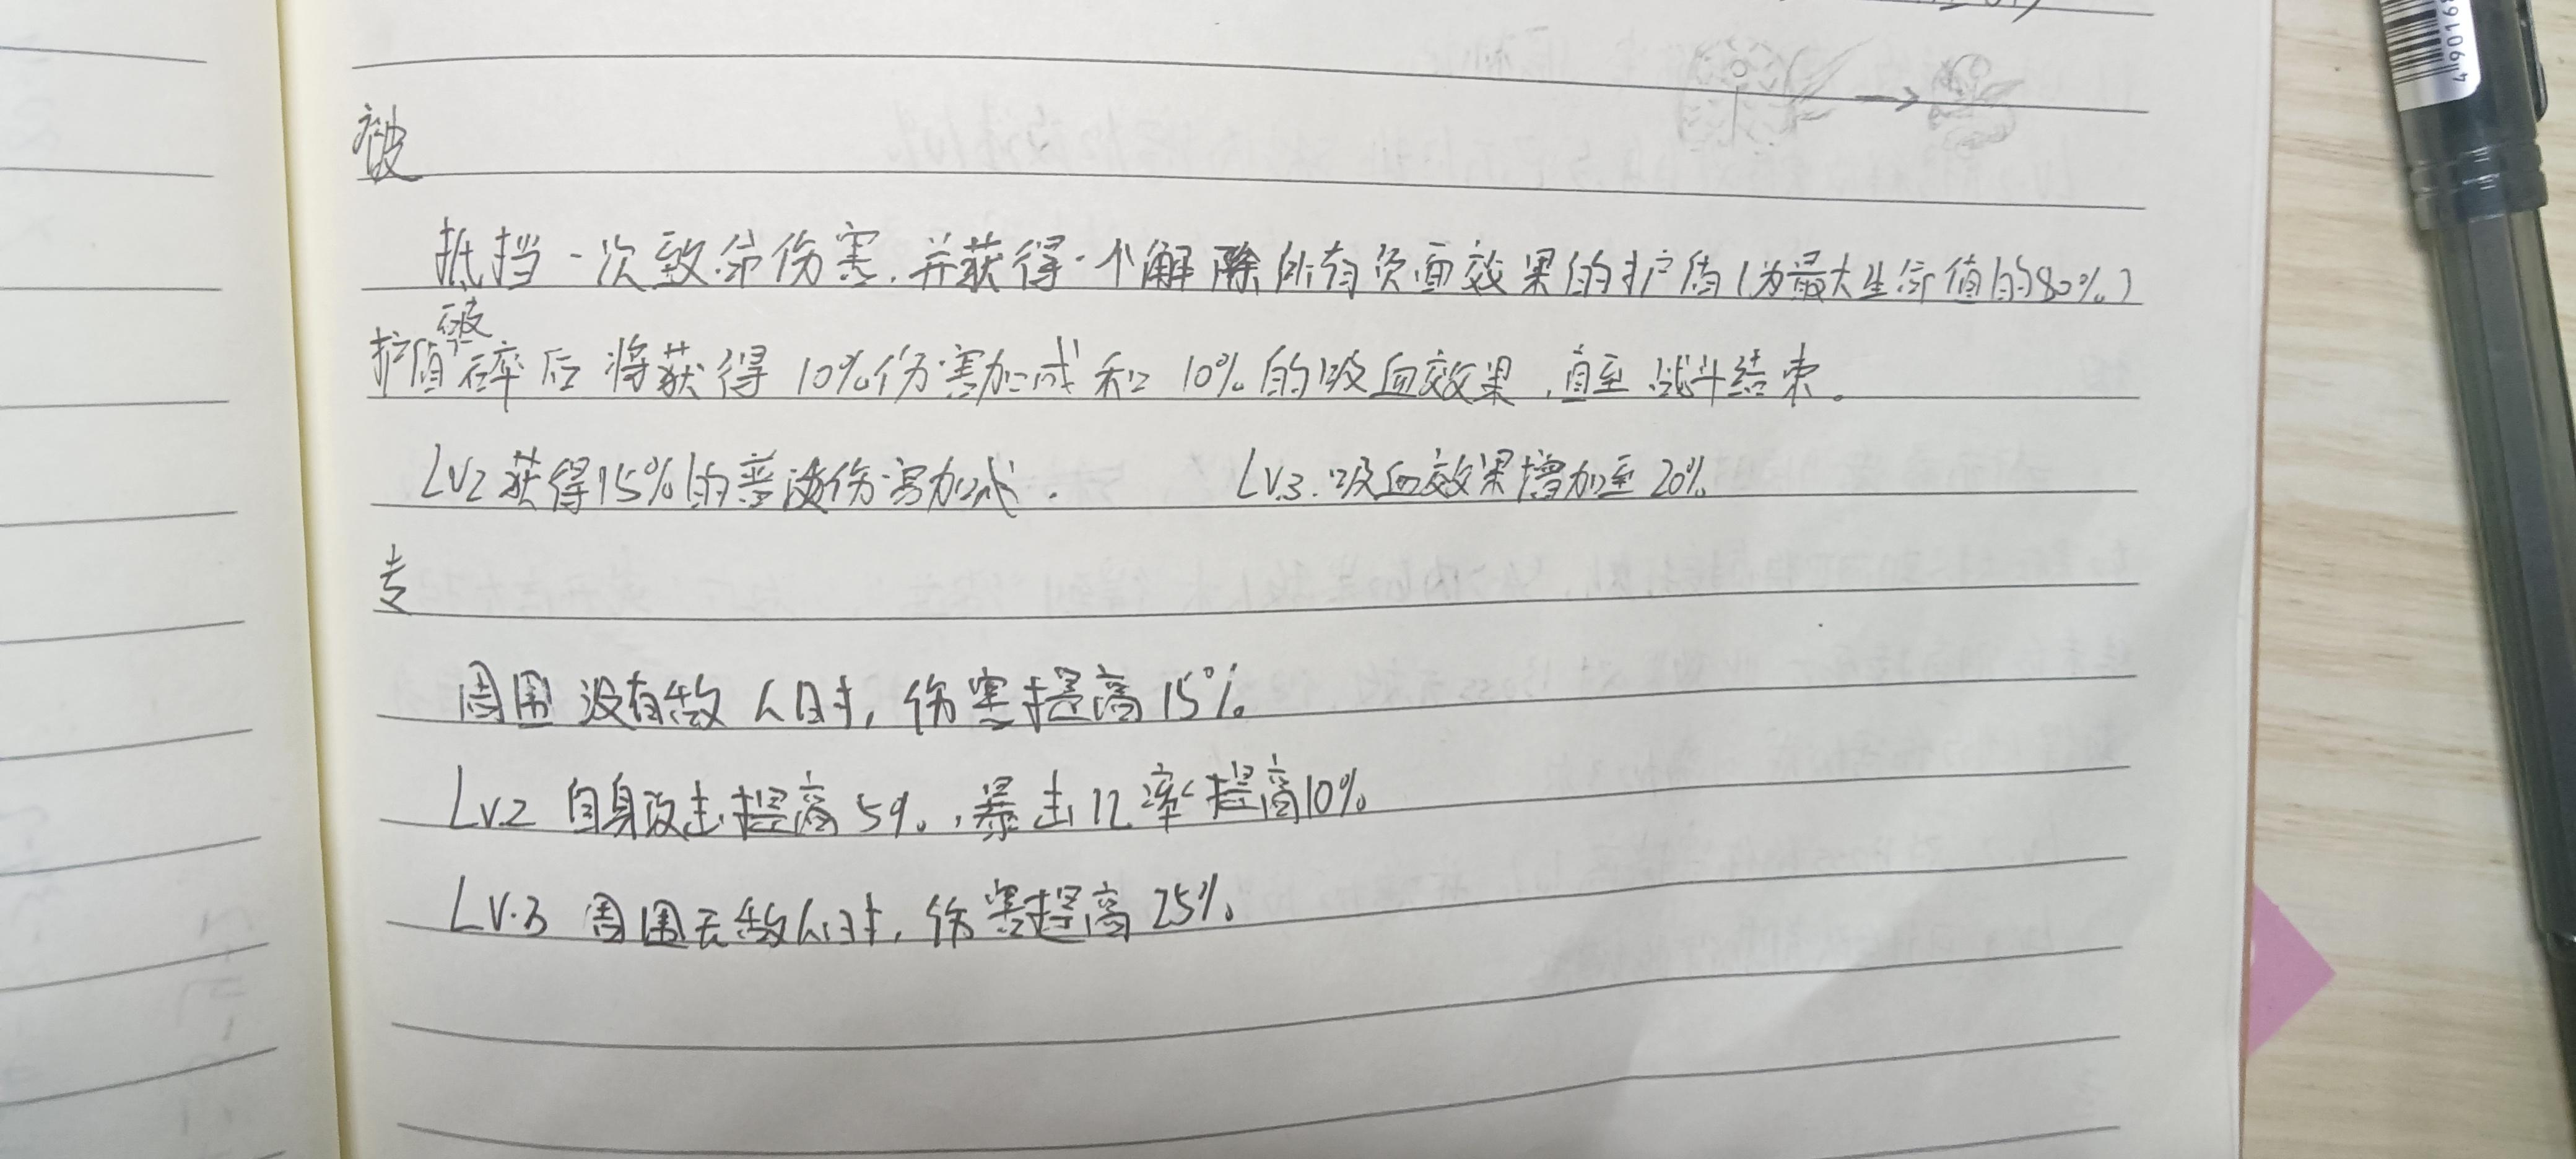 被
抵挡一次致命伤害,并获得一个解除所有负面效果的护盾(为最大生命值的80%)
护盾破碎后将获得10%伤害加成和10%的吸血效果,直至战斗结束。
LV2获得15%的普攻伤害加成. LV.3.吸血效果增加至20%
专
周围没有敌人时,伤害提高15%
LV.2 自身攻击提高5%,暴击几率提高10%
LV.3 周围无敌人时,伤害提高25%
490169